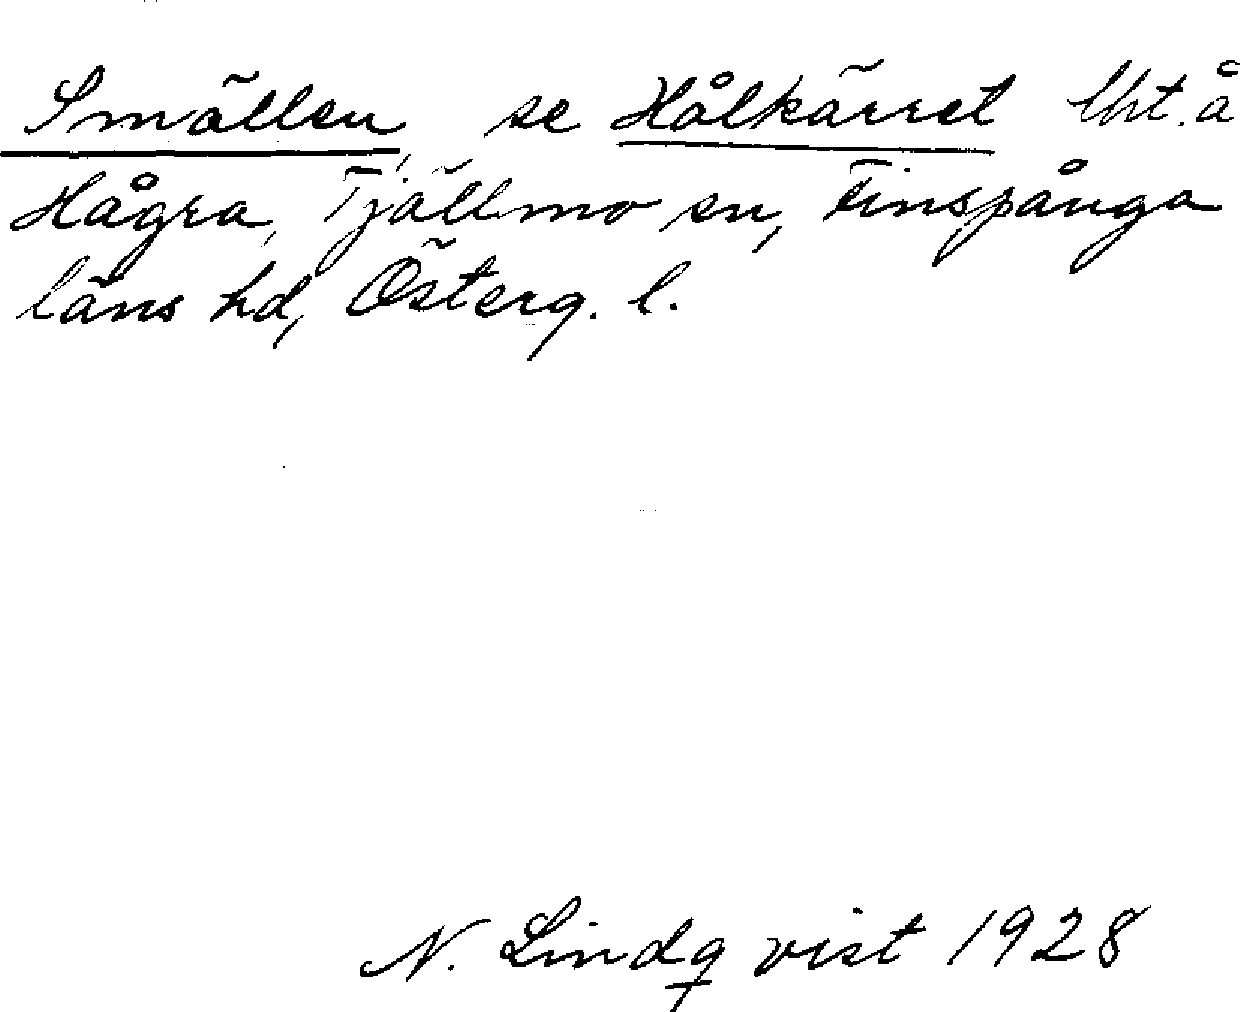 Smällen, se Hålkärret lht. å
Hågra, Tjällmo sn, Finspånga
läns hd, Österg. l.
N. Lindqvist 1928